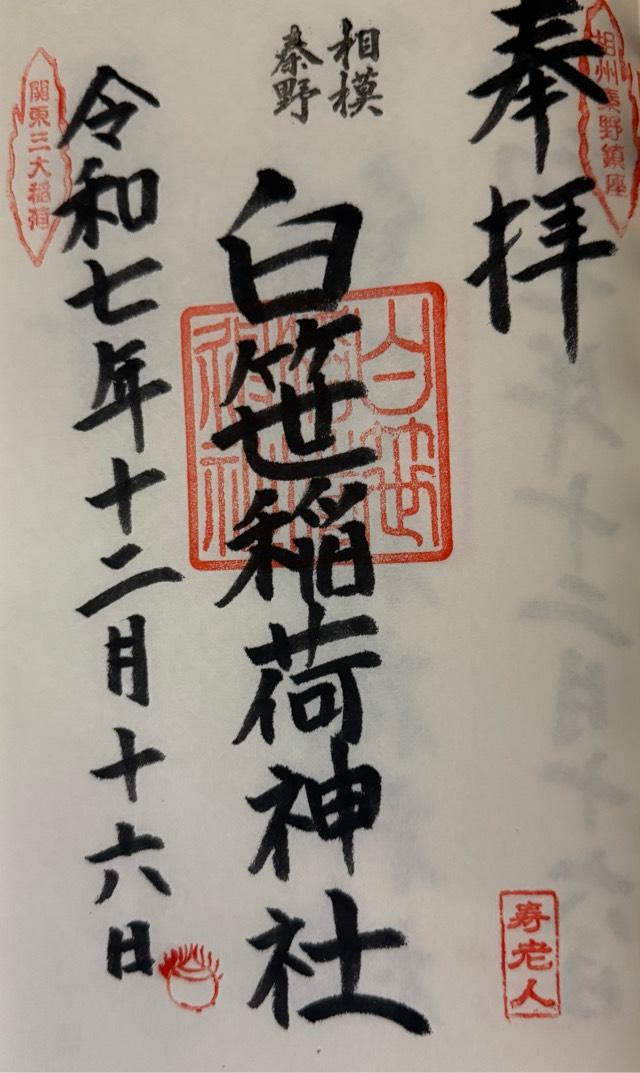 相州秦野鎮座
奉拝
相模
秦野
白笹稲荷神社
令和七年十二月十六日
関東三大稲荷
寿老人